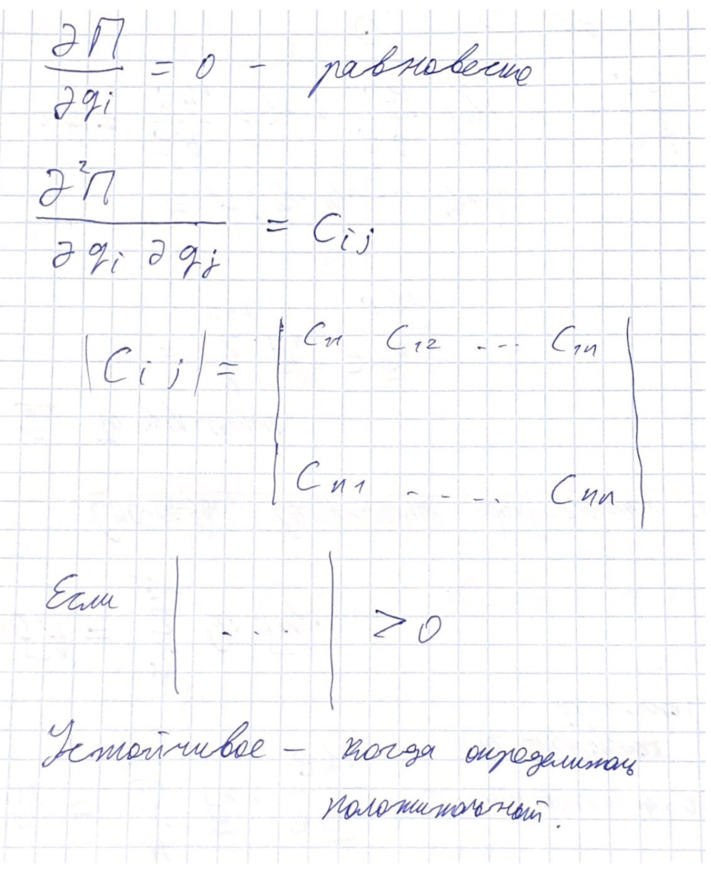 ∂П/∂qi = 0 - равновесие
∂²П/∂qi ∂qj = Cij
|Ci j| = | C11 C12 ... C1n
Cn1 ..... Cnn |
Если | ... | > 0
Устойчивое – когда определитель
положительный.